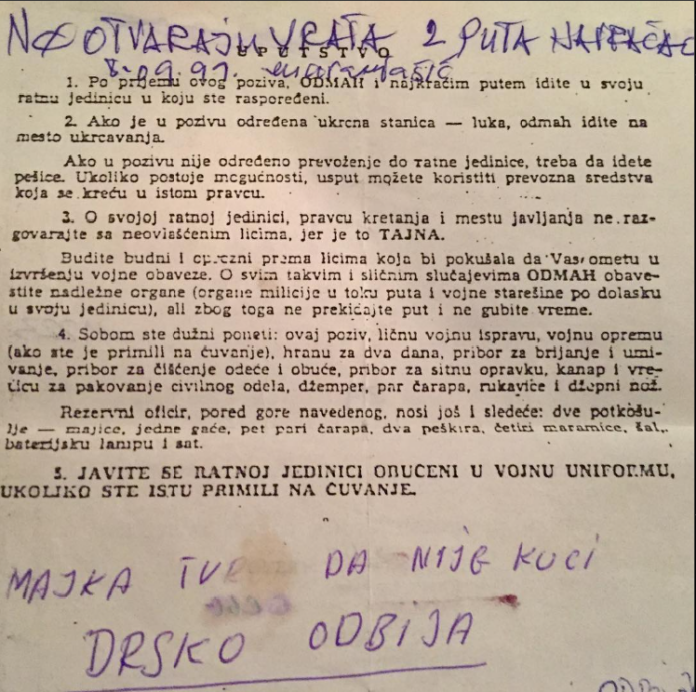 NE OTVARAJU VRATA 2 PUTA
UPUTSTVO
1. Po prijemu ovog poziva, ODMAH i najkraćim putem idite u svoju
ratnu jedinicu u koju ste raspoređeni.
2. Ako je u pozivu određena ukrcna stanica — luka, odmah idite na
mesto ukrcavanja.
Ako u pozivu nije određeno prevoženje do ratne jedinice, treba da idete
pešice. Ukoliko postoje mogućnosti, usput možete koristiti prevozna sredstva
koja se kreću u istom pravcu.
3. O svojoj ratnoj jedinici, pravcu kretanja i mestu javljanja ne raz-
govarajte sa neovlašćenim licima, jer je to TAJNA.
Budite budni i oprezni prema licima koja bi pokušala da Vas ometu u
izvršenju vojne obaveze. O svim takvim i sličnim slučajevima ODMAH obave-
stite nadležne organe (organe milicije u toku puta i vojne starešine po dolasku
u svoju jedinicu), ali zbog toga ne prekidajte put i ne gubite vreme.
4. Sobom ste dužni poneti: ovaj poziv, ličnu vojnu ispravu, vojnu opremu
(ako ste je primili na čuvanje), hranu za dva dana, pribor za brijanje i umi-
vanje, pribor za čišćenje odeće i obuće, pribor za sitnu opravku, kanap i vre-
ćicu za pakovanje civilnog odela, džemper, par čarapa, rukavice i džepni nož.
Rezervni oficir, pored gore navedenog, nosi još i sledeće: dve potkošu-
lje — majice, jedne gaće, pet pari čarapa, dva peškira, četiri maramice, šal,
baterijsku lampu i sat.
5. JAVITE SE RATNOJ JEDINICI OBUČENI U VOJNU UNIFORMU,
UKOLIKO STE ISTU PRIMILI NA ČUVANJE.
MAJKA DA NIJE KUCI
DRSKO ODBIJA